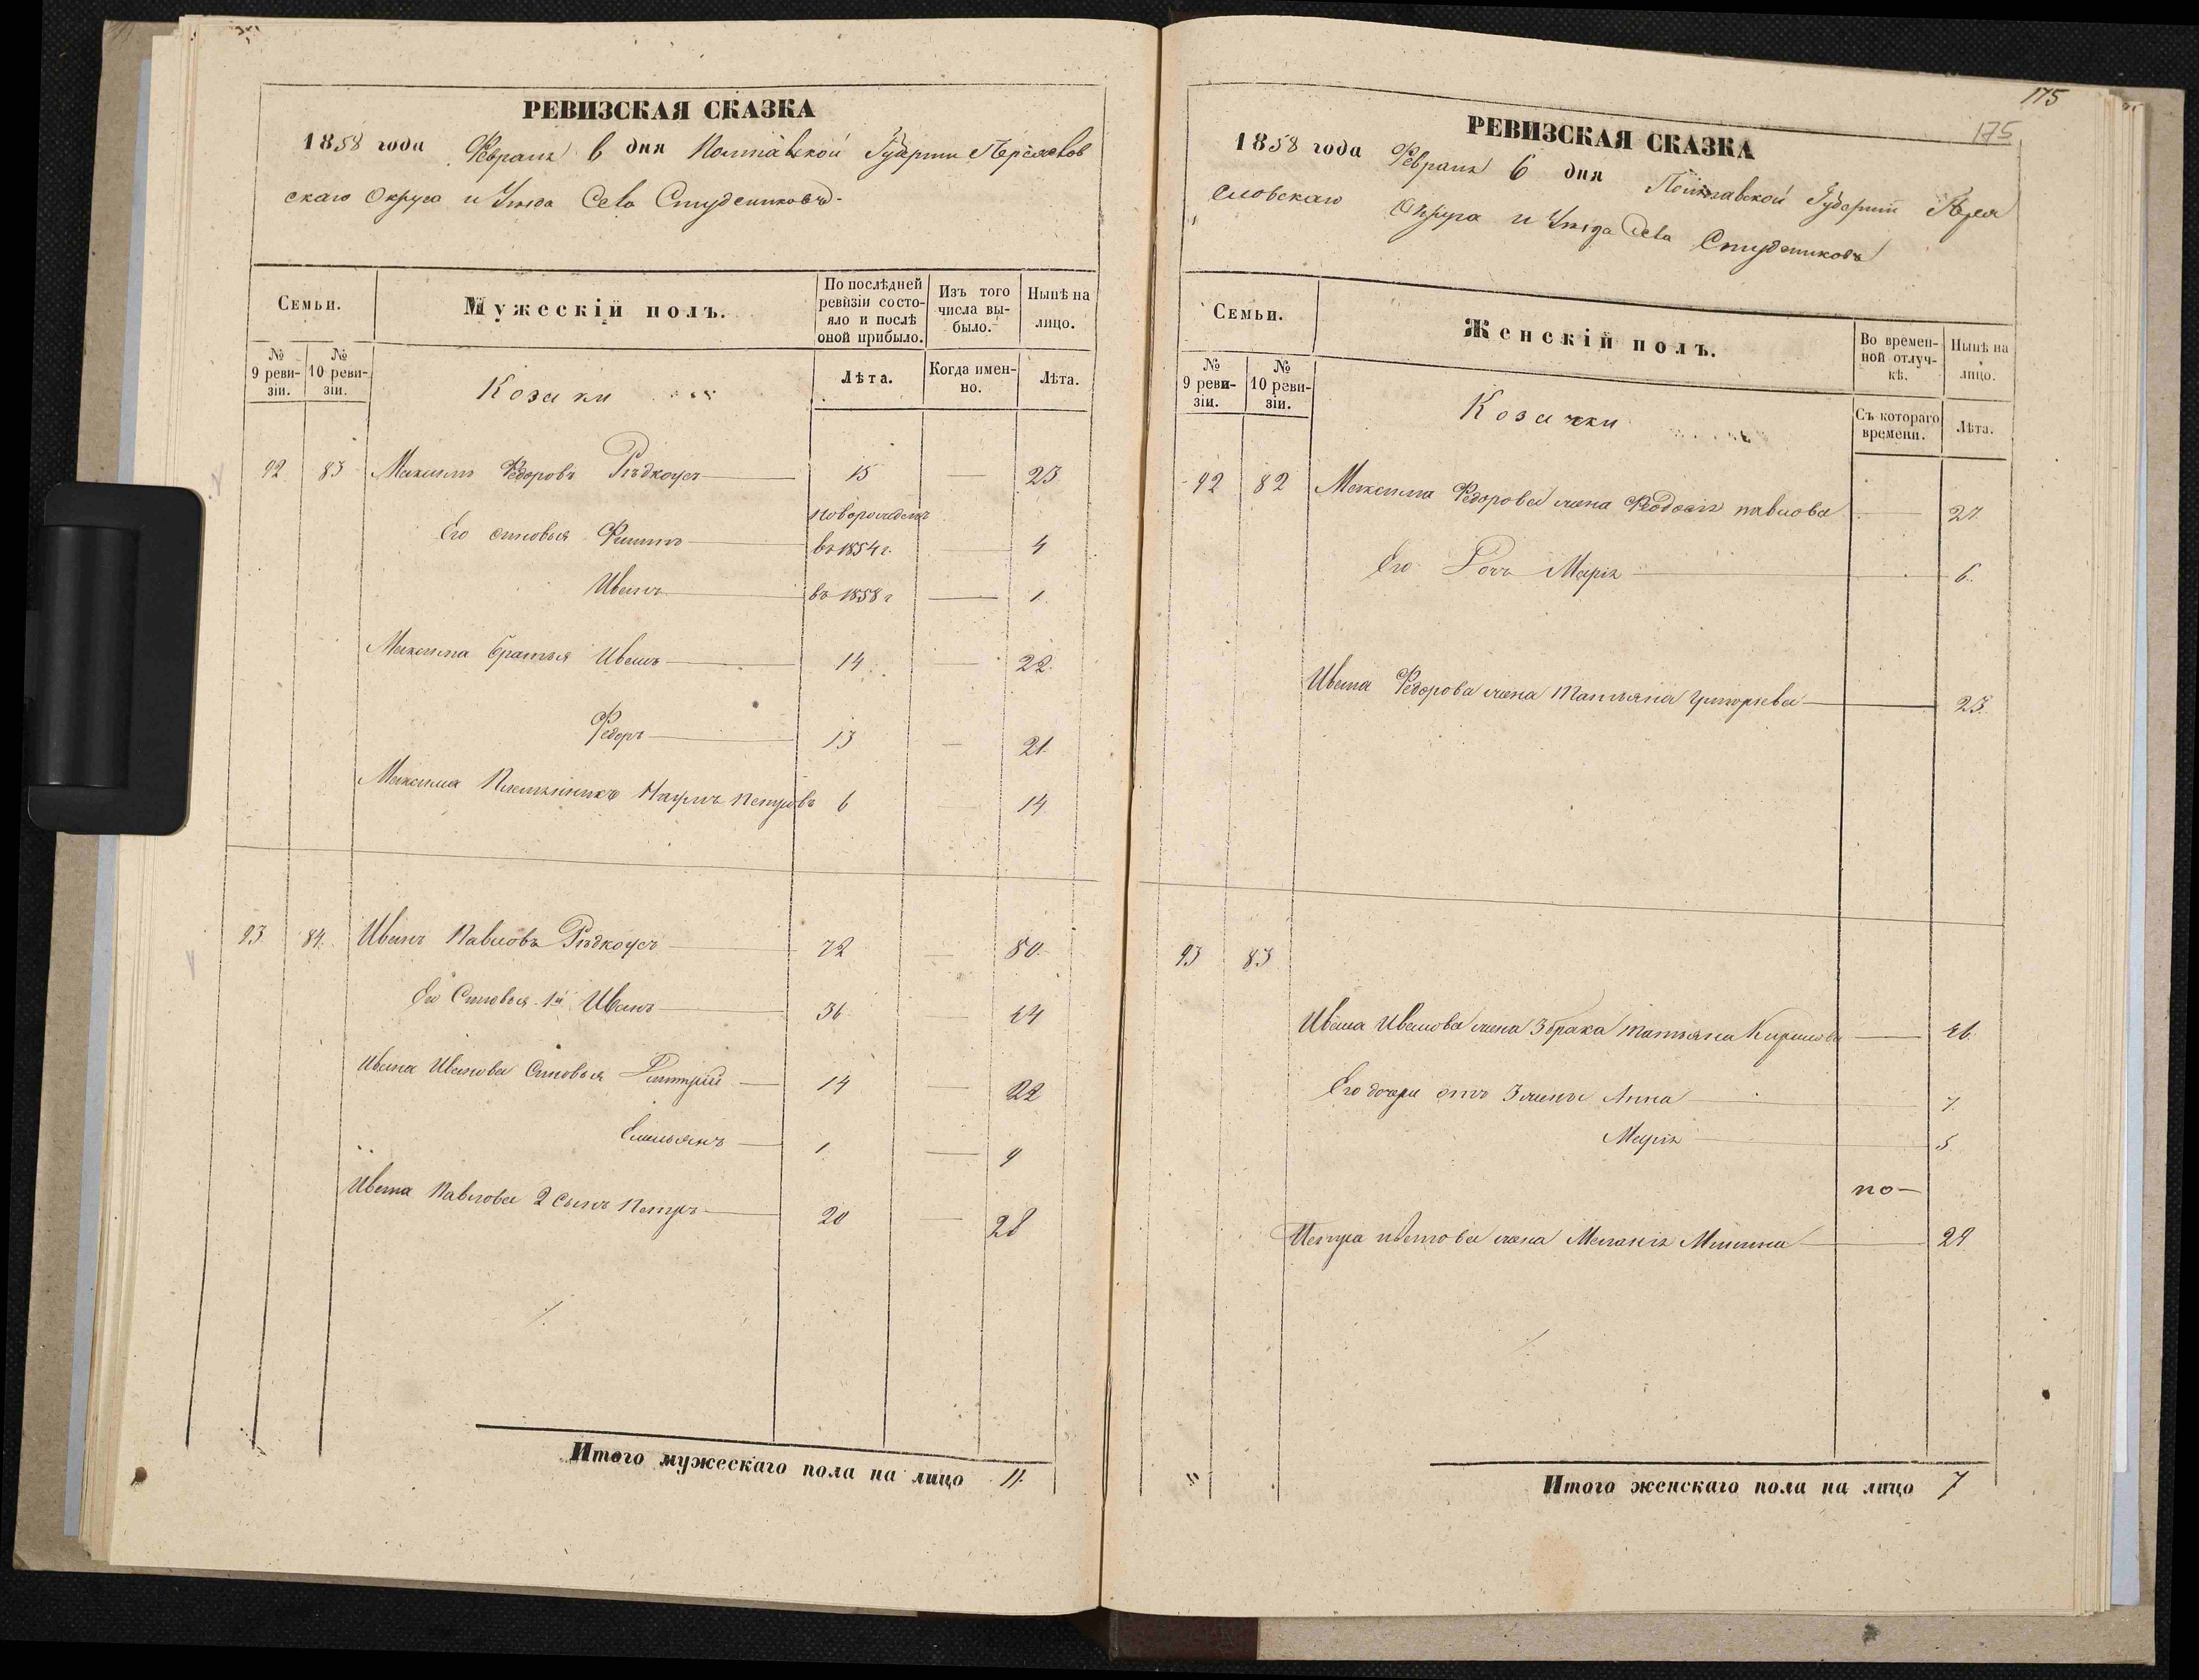 РЕВИЗСКАЯ СКАЗКА
1858 года Февраля 6 дня Полтавской Губернии Переяслов
скаго Округа и Уезда Села Студениковъ
Семьи.
Мужескій полъ.
По послѣдней ревизіи состояло и послѣ оной прибыло.
Изъ того числа выбыло.
Нынѣ на лицо.
№ 9 ревизіи.
№ 10 ревизіи.
Козаки
Лѣта.
Когда именно.
Лѣта.
92 83 Максимъ Федоровъ Рѣдкоусъ 15 — 23
новорожденъ
Его сыновья Филипъ въ 1854 г. — 4
Иванъ въ 1858 г — 1
Максима братья Иванъ 14 — 22.
Федоръ 13 — 21.
Максима Племянникъ Наумъ Петровъ 6 — 14
93 84. Иванъ Павловъ Рѣдкоусъ 72 — 80.
Его Сыновья 1й Иванъ 36 — 44
Ивана Иванова Сыновья Дмитрий 14 — 22
Емельянъ 1 — 9
Ивана Павлова 2 сынъ Петръ 20 — 28
Итого мужескаго пола на лицо 11.
175
175
РЕВИЗСКАЯ СКАЗКА
1858 года Февраля 6 дня Полтавской Губернии Перея
словскаго Округа и Уезда Села Студениковъ
Семьи.
Женскій полъ.
Во временной отлучкѣ.
Нынѣ на лицо.
№ 9 ревизіи.
№ 10 ревизіи.
Козачки
Съ котораго времени.
Лѣта.
92 82 Максима Федорова жена Феодосія павлова — 27.
Его Дочь Марія — 6.
Ивана Федорова жена Татьяна григорьева — 23.
93 83
Ивана Иванова жена 3 брака татьяна Кирилова — 46.
Его дочери отъ 3 жены Анна — 7.
Марія — 5
по —
Петра иванова жена Меланія Минина — 29
Итого женскаго пола на лицо 7